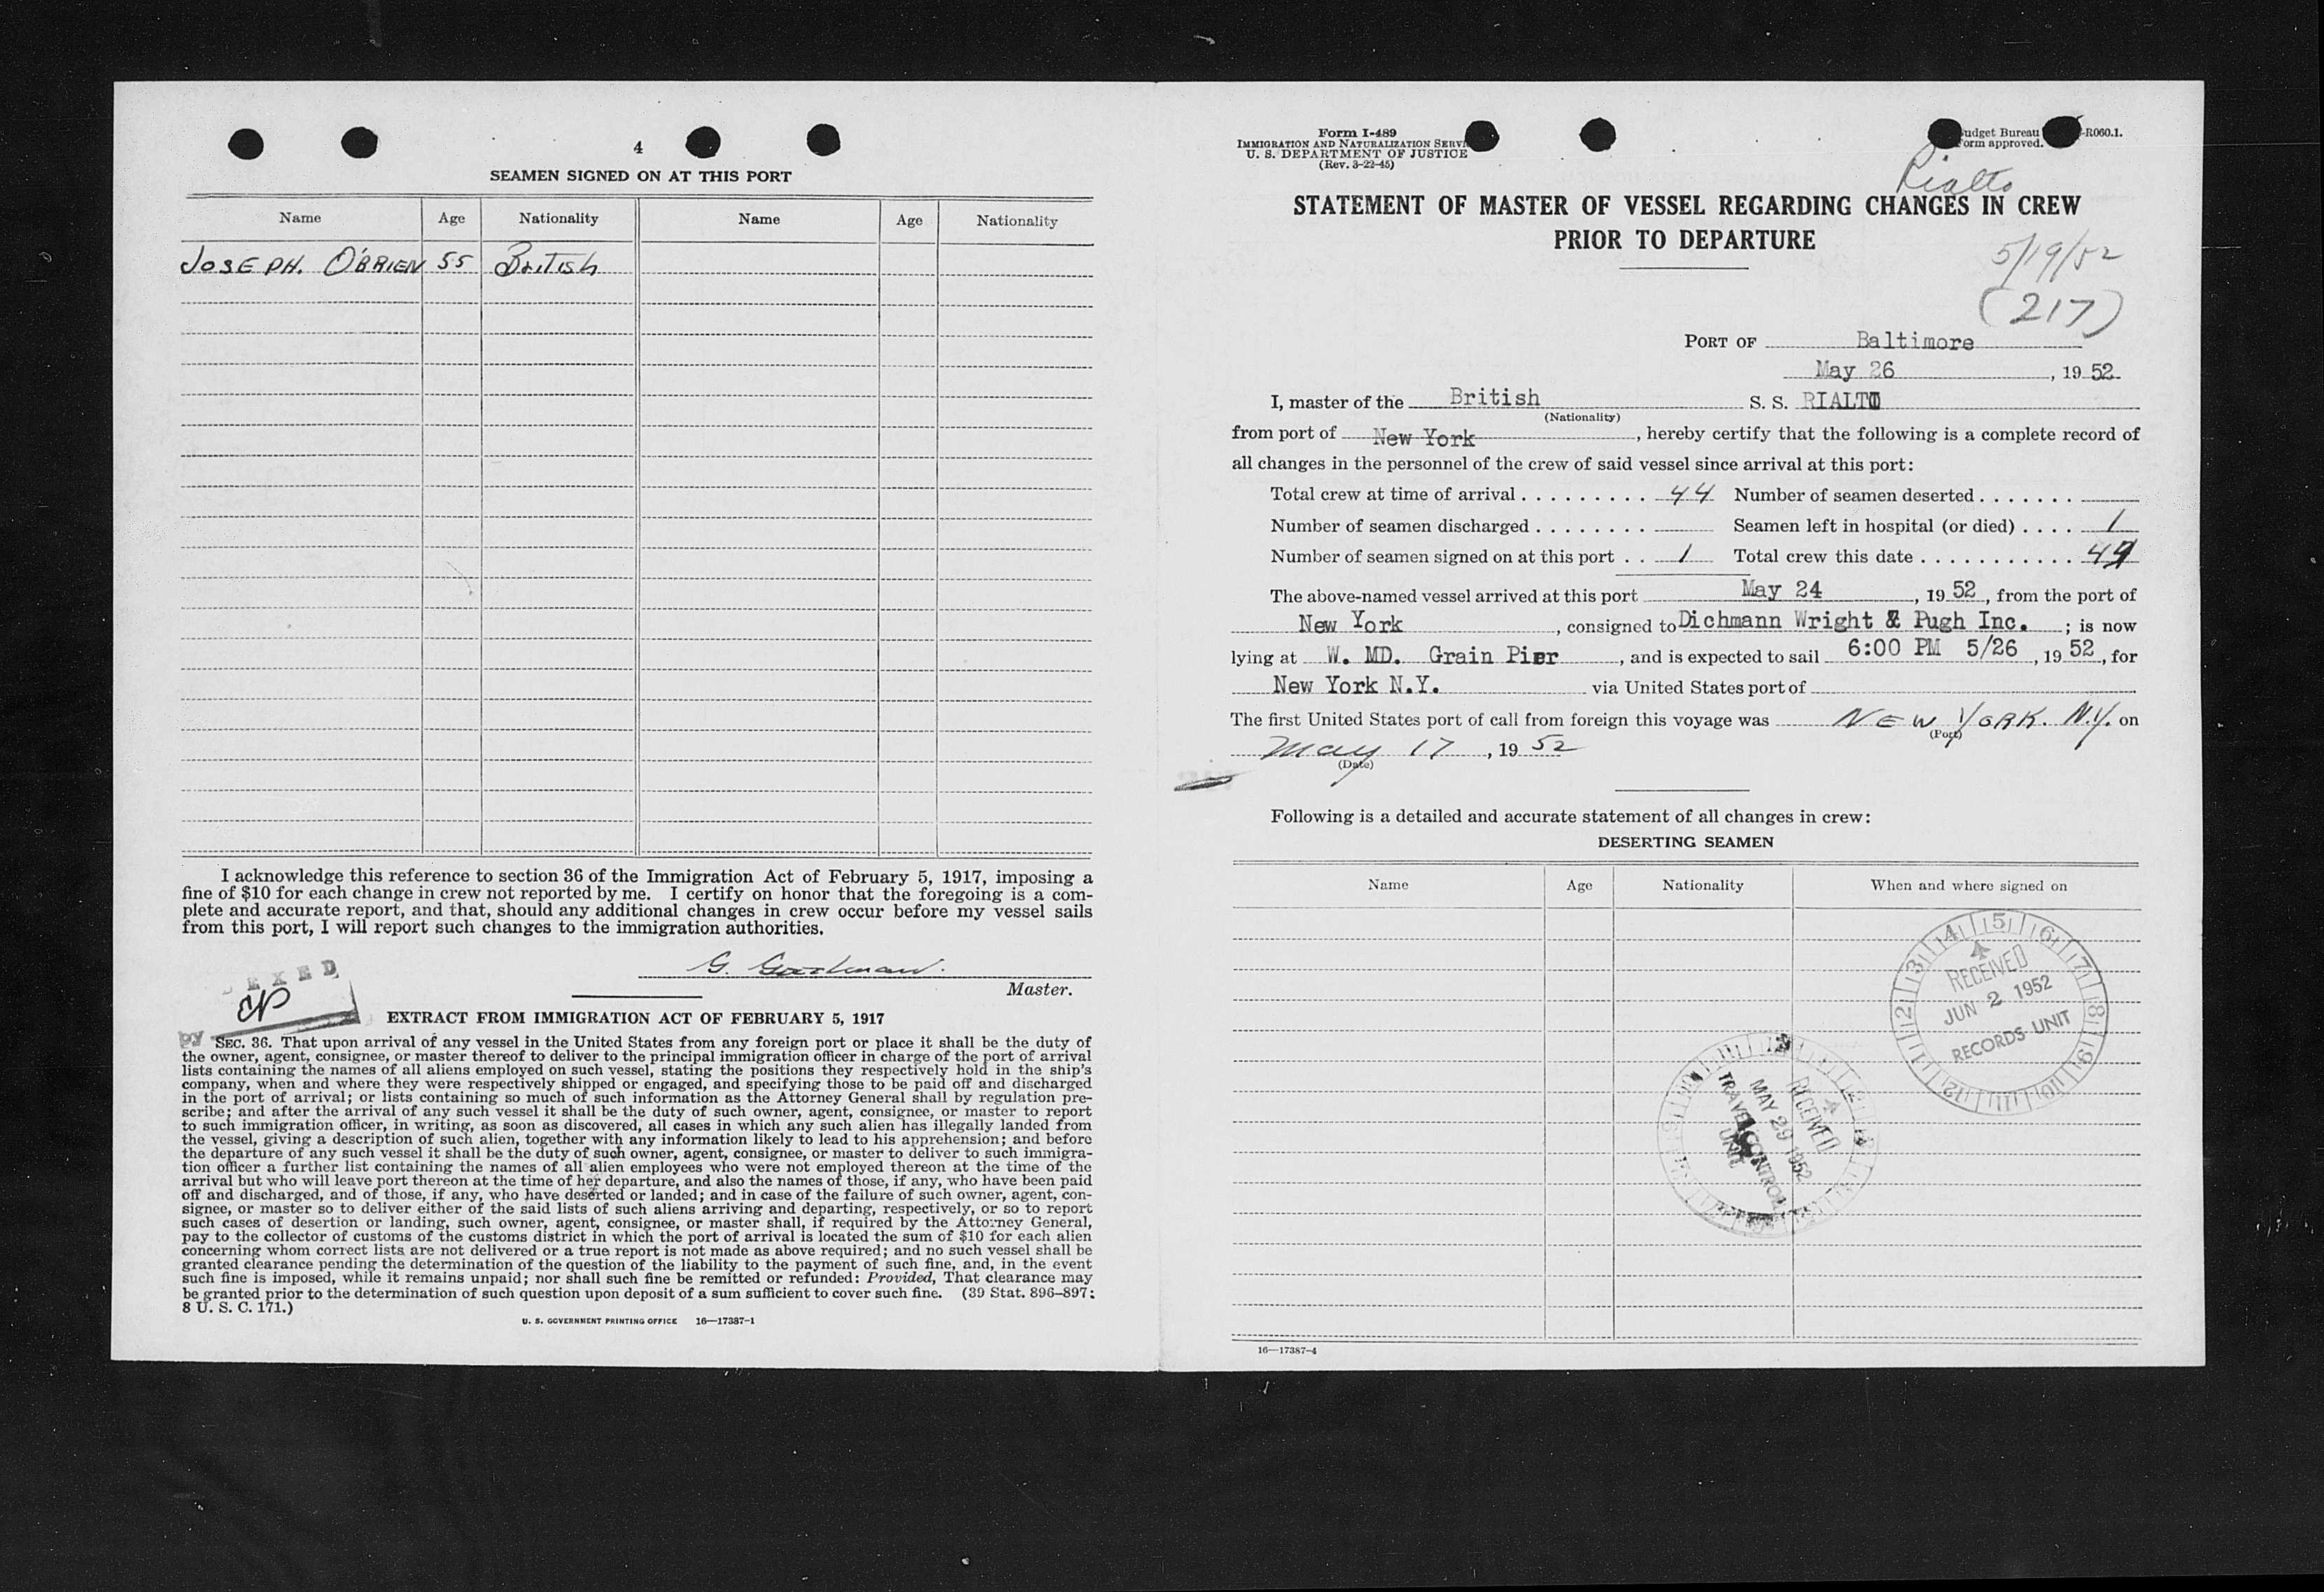 4
SEAMEN SIGNED ON AT THIS PORT
Name Age Nationality Name Age Nationality
JOSEPH. O'BRIEN 55 British
I acknowledge this reference to section 36 of the Immigration Act of February 5, 1917, imposing a
fine of $10 for each change in crew not reported by me. I certify on honor that the foregoing is a com-
plete and accurate report, and that, should any additional changes in crew occur before my vessel sails
from this port, I will report such changes to the immigration authorities.
G. Goodman.
Master.
EXED
BY
EXTRACT FROM IMMIGRATION ACT OF FEBRUARY 5, 1917
SEC. 36. That upon arrival of any vessel in the United States from any foreign port or place it shall be the duty of
the owner, agent, consignee, or master thereof to deliver to the principal immigration officer in charge of the port of arrival
lists containing the names of all aliens employed on such vessel, stating the positions they respectively hold in the ship's
company, when and where they were respectively shipped or engaged, and specifying those to be paid off and discharged
in the port of arrival; or lists containing so much of such information as the Attorney General shall by regulation pre-
scribe; and after the arrival of any such vessel it shall be the duty of such owner, agent, consignee, or master to report
to such immigration officer, in writing, as soon as discovered, all cases in which any such alien has illegally landed from
the vessel, giving a description of such alien, together with any information likely to lead to his apprehension; and before
the departure of any such vessel it shall be the duty of such owner, agent, consignee, or master to deliver to such immigra-
tion officer a further list containing the names of all alien employees who were not employed thereon at the time of the
arrival but who will leave port thereon at the time of her departure, and also the names of those, if any, who have been paid
off and discharged, and of those, if any, who have deserted or landed; and in case of the failure of such owner, agent, con-
signee, or master so to deliver either of the said lists of such aliens arriving and departing, respectively, or so to report
such cases of desertion or landing, such owner, agent, consignee, or master shall, if required by the Attorney General,
pay to the collector of customs of the customs district in which the port of arrival is located the sum of $10 for each alien
concerning whom correct lists are not delivered or a true report is not made as above required; and no such vessel shall be
granted clearance pending the determination of the question of the liability to the payment of such fine, and, in the event
such fine is imposed, while it remains unpaid; nor shall such fine be remitted or refunded: Provided, That clearance may
be granted prior to the determination of such question upon deposit of a sum sufficient to cover such fine. (39 Stat. 896–897;
8 U. S. C. 171.)
U. S. GOVERNMENT PRINTING OFFICE 16—17387-1
Form I-489
IMMIGRATION AND NATURALIZATION SERVI
U. S. DEPARTMENT OF JUSTICE
(Rev. 3-22-45)
udget Bureau -R060.1.
orm approved.
Rialto
STATEMENT OF MASTER OF VESSEL REGARDING CHANGES IN CREW
PRIOR TO DEPARTURE
5/19/52
(217)
PORT OF Baltimore
May 26, 19 52
I, master of the British S. S. RIALTO
(Nationality)
from port of New York, hereby certify that the following is a complete record of
all changes in the personnel of the crew of said vessel since arrival at this port:
Total crew at time of arrival . . . . . . . . . 44 Number of seamen deserted . . . . . . .
Number of seamen discharged . . . . . . . . Seamen left in hospital (or died) . . . . 1
Number of seamen signed on at this port . . 1 Total crew this date . . . . . . . . . . . 44
The above-named vessel arrived at this port May 24, 19 52, from the port of
New York, consigned to Dichmann Wright & Pugh Inc. ; is now
lying at W. MD. Grain Pier, and is expected to sail 6:00 PM 5/26, 19 52, for
New York N.Y. via United States port of
The first United States port of call from foreign this voyage was NEW YORK. N.Y. on
(Port)
May 17, 19 52
(Date)
Following is a detailed and accurate statement of all changes in crew:
DESERTING SEAMEN
Name Age Nationality When and where signed on
RECEIVED
JUN 2 1952
RECORDS UNIT
RECEIVED
MAY 29 1952
TRAVEL CONTROL
UNIT
16—17387-4